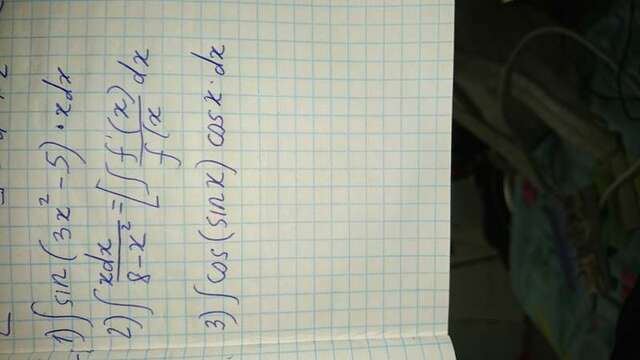 1) ∫ sin(3x² - 5) · xdx
2) ∫ xdx / 8 - x² = [∫ f'(x) / f(x dx
3) ∫ cos(sinx) cosx · dx